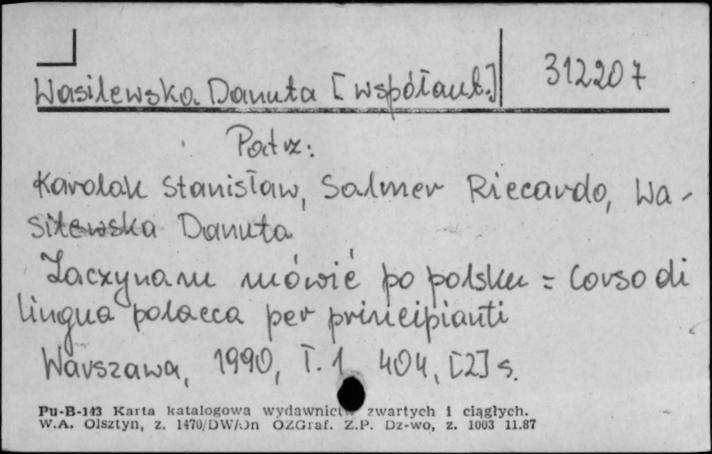 Wasilewska Danuta [współaut.] 312207
Patrz:
Karolak Stanisław, Salmer Riccardo, Wa-
silewska Danuta
Zaczynam mówić po polsku = Corso di
lingua polacca per principianti
Warszawa, 1990, T. 1 404, [2] s.
Pu-B-143 Karta katalogowa wydawnictw zwartych i ciągłych.
W.A. Olsztyn, z. 1470/DW/Dn OZGraf. Z.P. Dz-wo, z. 1003 11.87